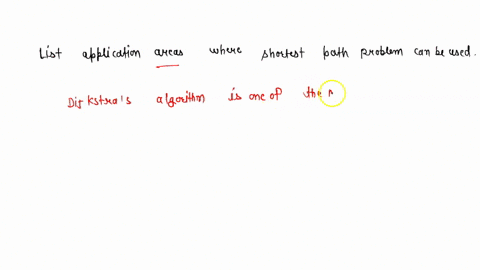 List application areas where shortest path problem can be used.
Dijkstra's algorithm is one of the